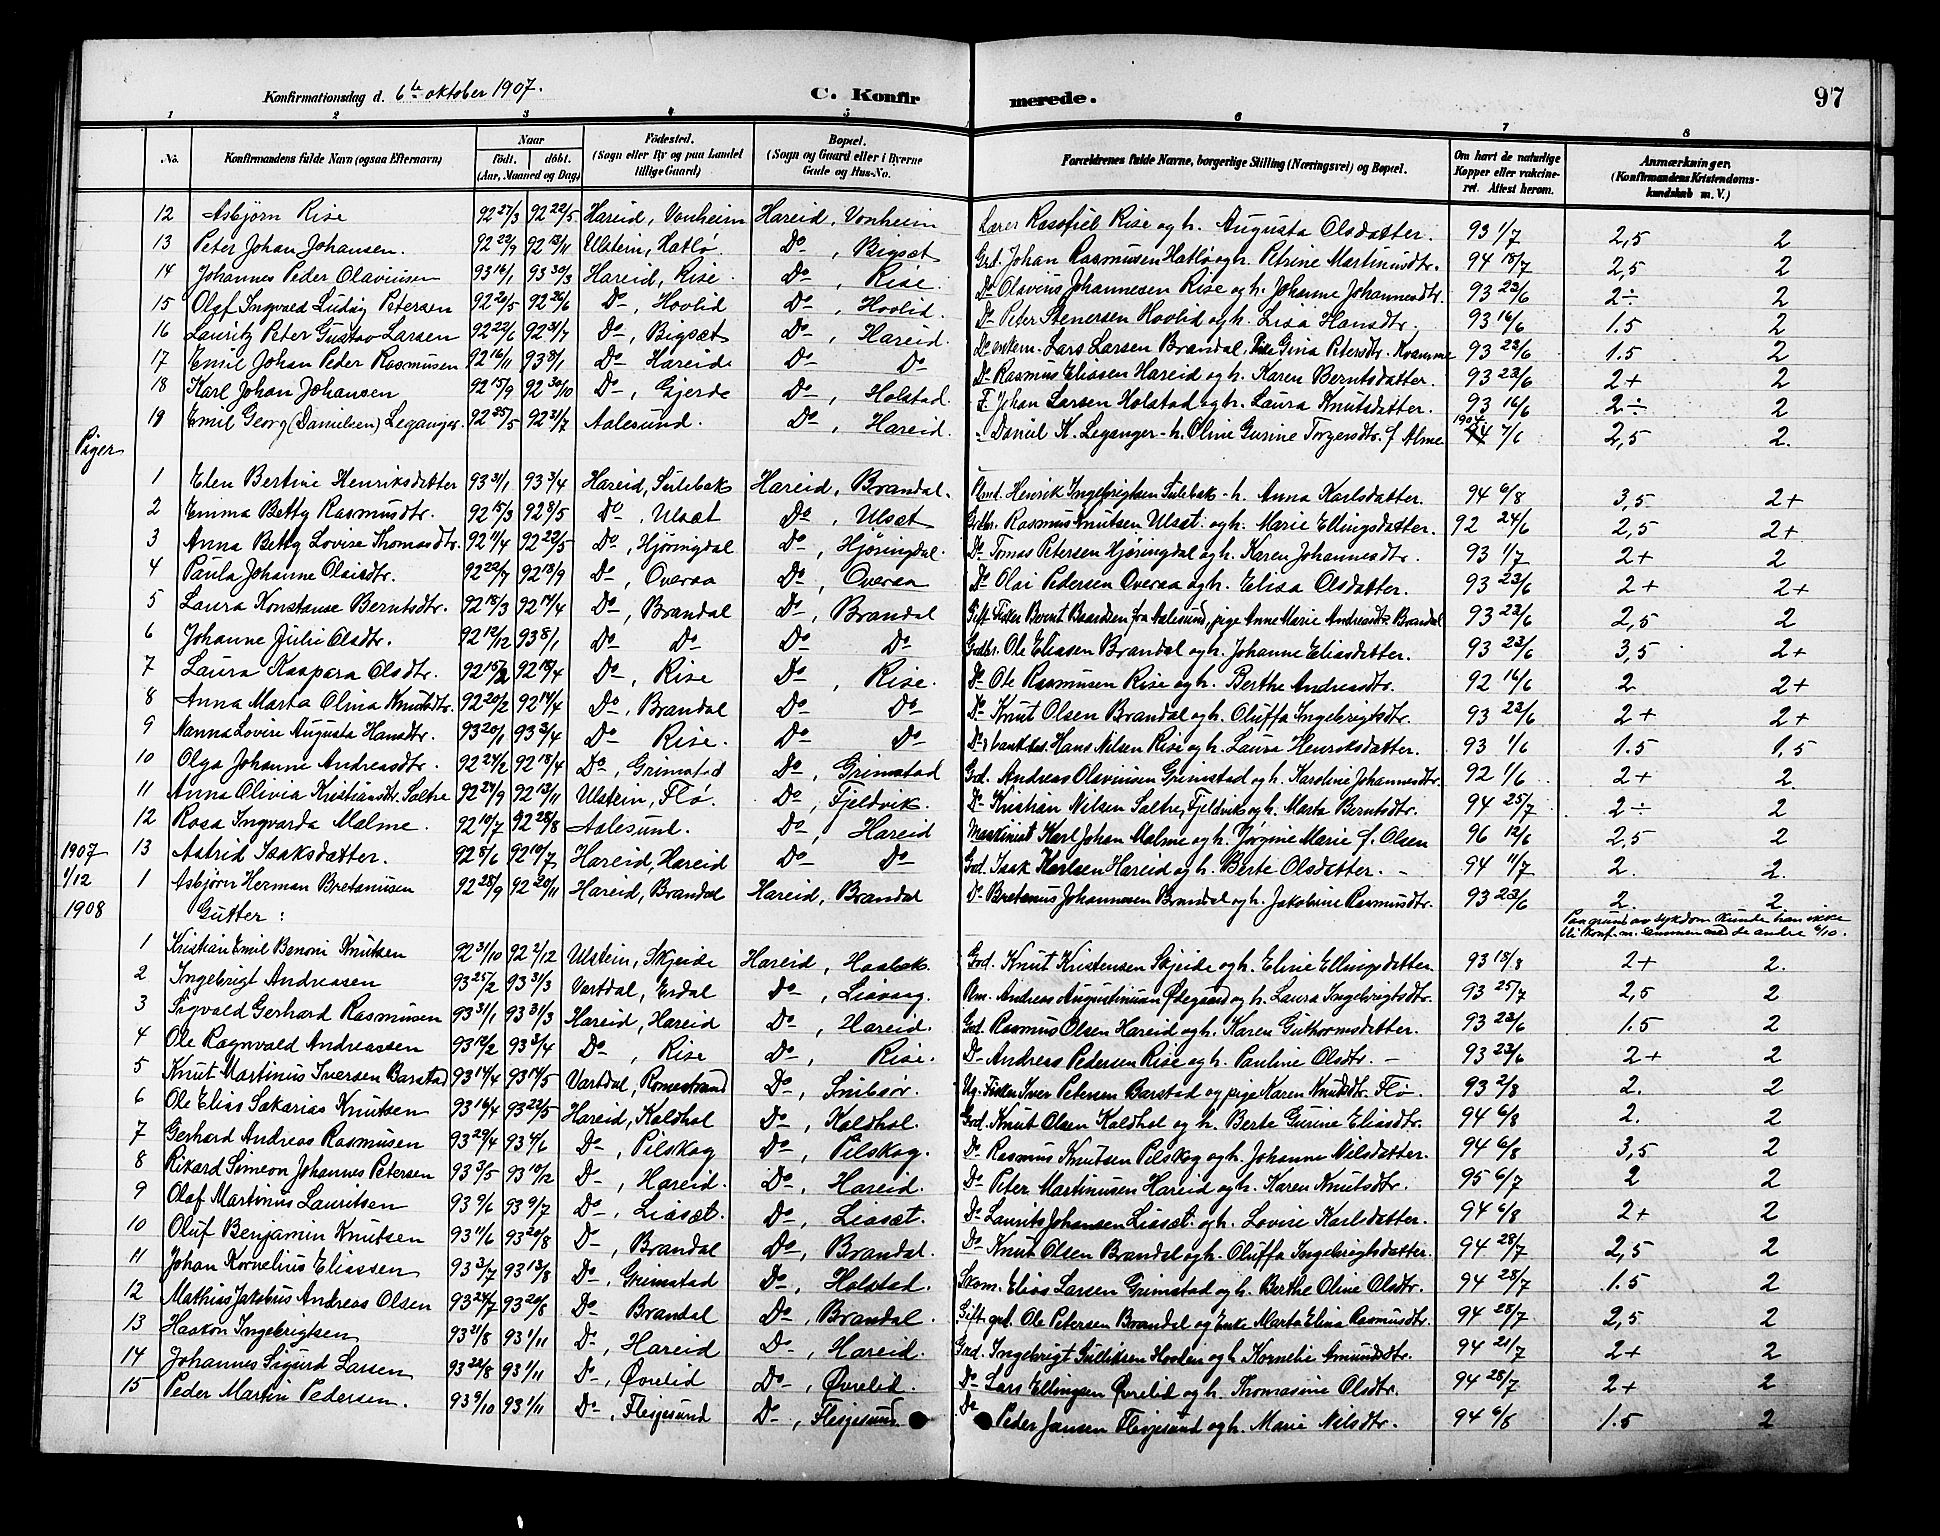 Konfirmationsdag d. 6te oktober 1907. C. Konfirmerede. 97
1 2 3 4 5 6 7 8
No. Konfirmandens fulde Navn (ogsaa Efternavn) Naar født. døbt. (Aar, Maaned og Dag) Fødested. (Sogn eller By og paa Landet tillige Gaard) Bopæl. (Sogn og Gaard eller i Byerne Gade og Hus-No. Forældrenes fulde Navne, borgerlige Stilling (Næringsvei) og Bopæl. Om havt de naturlige Kopper eller vaccineret. Attest herom. Anmærkninger. (Konfirmandens Kristendomskundskab m. V.)
12 Asbjørn Rise 92 27/3 92 22/5 Hareid, Vonheim Hareid, Vonheim Lærer Rise og h. Augusta Olsdatter. 93 1/7 2,5 2
13 Peter Johan Johansen. 92 22/9 92 13/11 Ulstein, Hatlø Do, Bigsæt Grd. Johan Rasmusen Hatlø og h. Petrine Martinusdtr. 94 18/7 2,5 2
14 Johannes Peder Olavinsen 93 16/1 93 30/3 Hareid, Rise. Do, Rise. Do Olavius Johannesen Rise og h. Johanne Johannesdtr. 93 23/6 2÷ 2
15 Olaf Ingvald Ludvig Petersen 92 20/5 92 26/6 Do, Hovlid Do, Hovlid. Do Peter Stenersen Hovlid og h. Lisa Hansdtr. 93 16/6 1.5 2
16 Lauritz Peter Gustav Larsen 92 22/6 92 31/7 Do, Bigsæt Do, Hareid. Do enkem. Lars Larsen Brandal, Gina Petersdtr. Kvamme 93 23/6 1.5 2
17 Emil Johan Peder Rasmusen 92 16/11 93 8/1 Do, Hareide Do Do Do Rasmus Eliasen Hareid og h. Karen Berntsdatter. 93 23/6 2+ 2
18 Karl Johan Johansen 92 15/9 92 30/10 Do, Gjerde Do, Holstad. F. Johan Larsen Holstad og h. Laura Knutsdatter. 93 16/6 2÷ 2
19 Emil Georg (Danielsen) Leganger. 92 25/5 92 31/7 Aalesund. Do, Hareid. Daniel K. Leganger - h. Oline Gurine Torgersdtr. f. Alme 1904 4/6 2,5 2.
Piger
1 Elen Bertine Henriksdatter 93 31/1 93 3/4 Hareid, Sulebak Hareid, Brandal. Henrik Ingebrigtsen Sulebak - h. Anna Karlsdatter. 94 6/8 3,5 2+
2 Emma Betty Rasmusdtr. 92 15/3 92 8/5 Do, Ulsæt Do, Ulsæt Rasmus Knutsen Ulsæt og h. Marie Ellingsdatter. 92 24/6 2,5 2+
3 Anna Betty Lovise Thomasdtr. 92 11/4 92 22/5 Do, Hjøringdal Do, Hjøringdal. Do Tomas Petersen Hjøringdal og h. Karen Johannesdtr. 93 1/7 2+ 2
4 Paula Johanne Olaisdtr. 92 22/7 92 18/9 Do, Overaa Do, Overaa Do Olai Pedersen Overaa og h. Elisa Olsdatter. 93 23/6 2+ 2+
5 Laura Konstanse Berntsdtr. 92 18/3 92 14/4 Do, Brandal Do, Brandal Gift Fisker Bernt Baardsen fra Aalesund, pige Anne Marie Andreasdtr. Brandal 93 23/6 2,5 2
6 Johanne Julie Olsdtr. 92 12/12 93 8/1 Do Do Do Do Ole Eliasen Brandal og h. Johanne Eliasdatter. 93 23/6 3,5 2+
7 Laura Kaspara Olsdtr. 92 15/2 92 18/4 Do, Rise Do, Rise. Do Ole Rasmusen Rise og h. Berthe Andreasdtr. 92 16/6 2 2+
8 Anna Marta Olina Knutsdtr. 92 20/2 92 14/4 Do, Brandal Do Do Do Knut Olsen Brandal og h. Oluffa Ingebrigtsdtr. 93 23/6 2+ 2+
9 Nanna Lovise Augusta Hansdtr. 93 20/1 93 3/4 Do Rise. Do Do Do Hans Nilsen Rise og h. Laura Henriksdatter. 93 1/6 1.5 1.5
10 Olga Johanne Andreasdtr. 92 24/2 92 18/4 Do, Grimstad Do, Grimstad Grd. Andreas Olavinsen Grimstad og h. Karoline Johannesdtr. 92 1/6 2+ 2.
11 Anna Olivia Kristiansdtr. Saltre 92 24/9 92 13/11 Ulstein, Flø. Do, Fjeldvik. Do Kristian Nilsen Saltre, Fjeldvik og h. Marta Berntsdtr. 94 25/7 2÷ 2
12 Rosa Ingvarda Malme. 92 10/7 92 28/8 Aalesund. Do, Hareid Maskinist Karl Johan Malme og h. Jørgine Marie f. Olsen 96 12/6 2,5 2
1907 13 Astrid Isaksdatter. 92 5/6 92 10/7 Hareid, Hareid Do Do Grd. Isak Karlsen Hareid og h. Berte Olsdatter. - 94 11/7 2. 2.
1/12 1 Asbjørn Herman Bretanusen 92 28/9 92 20/11 Hareid, Brandal Hareid, Brandal Do Bretanus Johannesen Brandal og h. Jakobine Rasmusdtr. 93 23/6 2. 2
1908 Gutter: Paa grund av sykdom kunde han ikke bli konfirm. sammen med de andre 6/10.
1 Kristian Emil Benoni Knutsen 92 31/10 92 2/12 Ulstein, Skjeide Hareid, Haabak. Grd. Knut Kristensen Skjeide og h. Eline Ellingsdatter. 93 18/8 2+ 2.
2 Ingebrigt Andreasen 93 25/2 93 31/3 Vartdal, Erdal Do, Liavaag. Andreas Augustinusn Ødegaard og h. Laura Ingebrigtsdtr. 93 25/7 2,5 2
3 Sigvald Gerhard Rasmusen 93 31/1 93 31/3 Hareid, Hareid Do, Hareid. Grd. Rasmus Olsen Hareid og h. Karen Guthormsdatter. 93 23/6 1.5 2
4 Ole Ragnvald Andreassen 93 12/2 93 3/4 Do, Rise Do, Rise. Do Andreas Pedersen Rise og h. Pauline Olsdtr. - 93 23/6 2+ 2
5 Knut Martinus Iversen Barstad 93 14/4 93 14/5 Vartdal, Romestrand Do, Snibsør. Ug. Fisker Iver Petersen Barstad og pige Karen Knutsdtr. Flø. 93 2/8 2. 2
6 Ole Elias Sakarias Knutsen 93 16/4 93 22/5 Hareid, Kaldhol Do, Kaldhol. Grd. Knut Olsen Kaldhol og h. Berte Gurine Eliasdtr. 94 6/8 2. 2
7 Gerhard Andreas Rasmusen 93 29/4 93 4/6 Do, Pilskog Do, Pilskog. Do Rasmus Knutsen Pilskog og h. Johanne Nilsdatter. 94 6/8 3,5 2
8 Rikard Simeon Johannes Petersen 93 3/5 93 10/12 Do, Hareid. Do, Hareid. Do Peter Martinusen Hareid og h. Karen Knutsdtr. 95 6/7 2 2
9 Olaf Martinus Lauritsen 93 9/6 93 9/7 Do, Liasæt. Do, Liasæt. Do Laurits Johansen Liasæt og h. Lovise Karlsdatter. 94 6/8 2+ 2
10 Oluf Benjamin Knutsen 93 11/6 93 20/8 Do, Brandal Do, Brandal. Do Knut Olsen Brandal og h. Oluffa Ingebrigtsdatter. 94 28/7 2,5 2
11 Johan Kornelius Eliassen 93 3/7 93 13/8 Do, Grimstad Do, Holstad. Elias Larsen Grimstad og h. Berthe Oline Olsdtr. 94 28/7 1.5 2
12 Mathias Jakobus Andreas Olsen 93 24/7 93 20/8 Do Brandal Do, Brandal. Gift grd. Ole Petersen Brandal og Enke Marta Elina Rasmusdtr. 94 28/7 2,5 2
13 Haakon Ingebrigtsen 93 21/8 93 1/11 Do, Hareid Do, Hareid. Grd. Ingebrigt Gulliksen og h. Kornelie Amundsdtr. 94 21/7 2+ 2
14 Johannes Sigurd Larsen 93 22/8 93 1/11 Do, Øvrelid Do, Øvrelid. Do Lars Ellingsen Øvrelid og h. Thomasine Olsdtr. 94 28/7 2+ 2
15 Peder Martin Pedersen. 93 9/10 93 1/11 Do, Flesjesund Do, Flesjesund. Do Peder Jansen Flesjesund og h. Marie Nilsdtr. 94 6/8 1.5 2